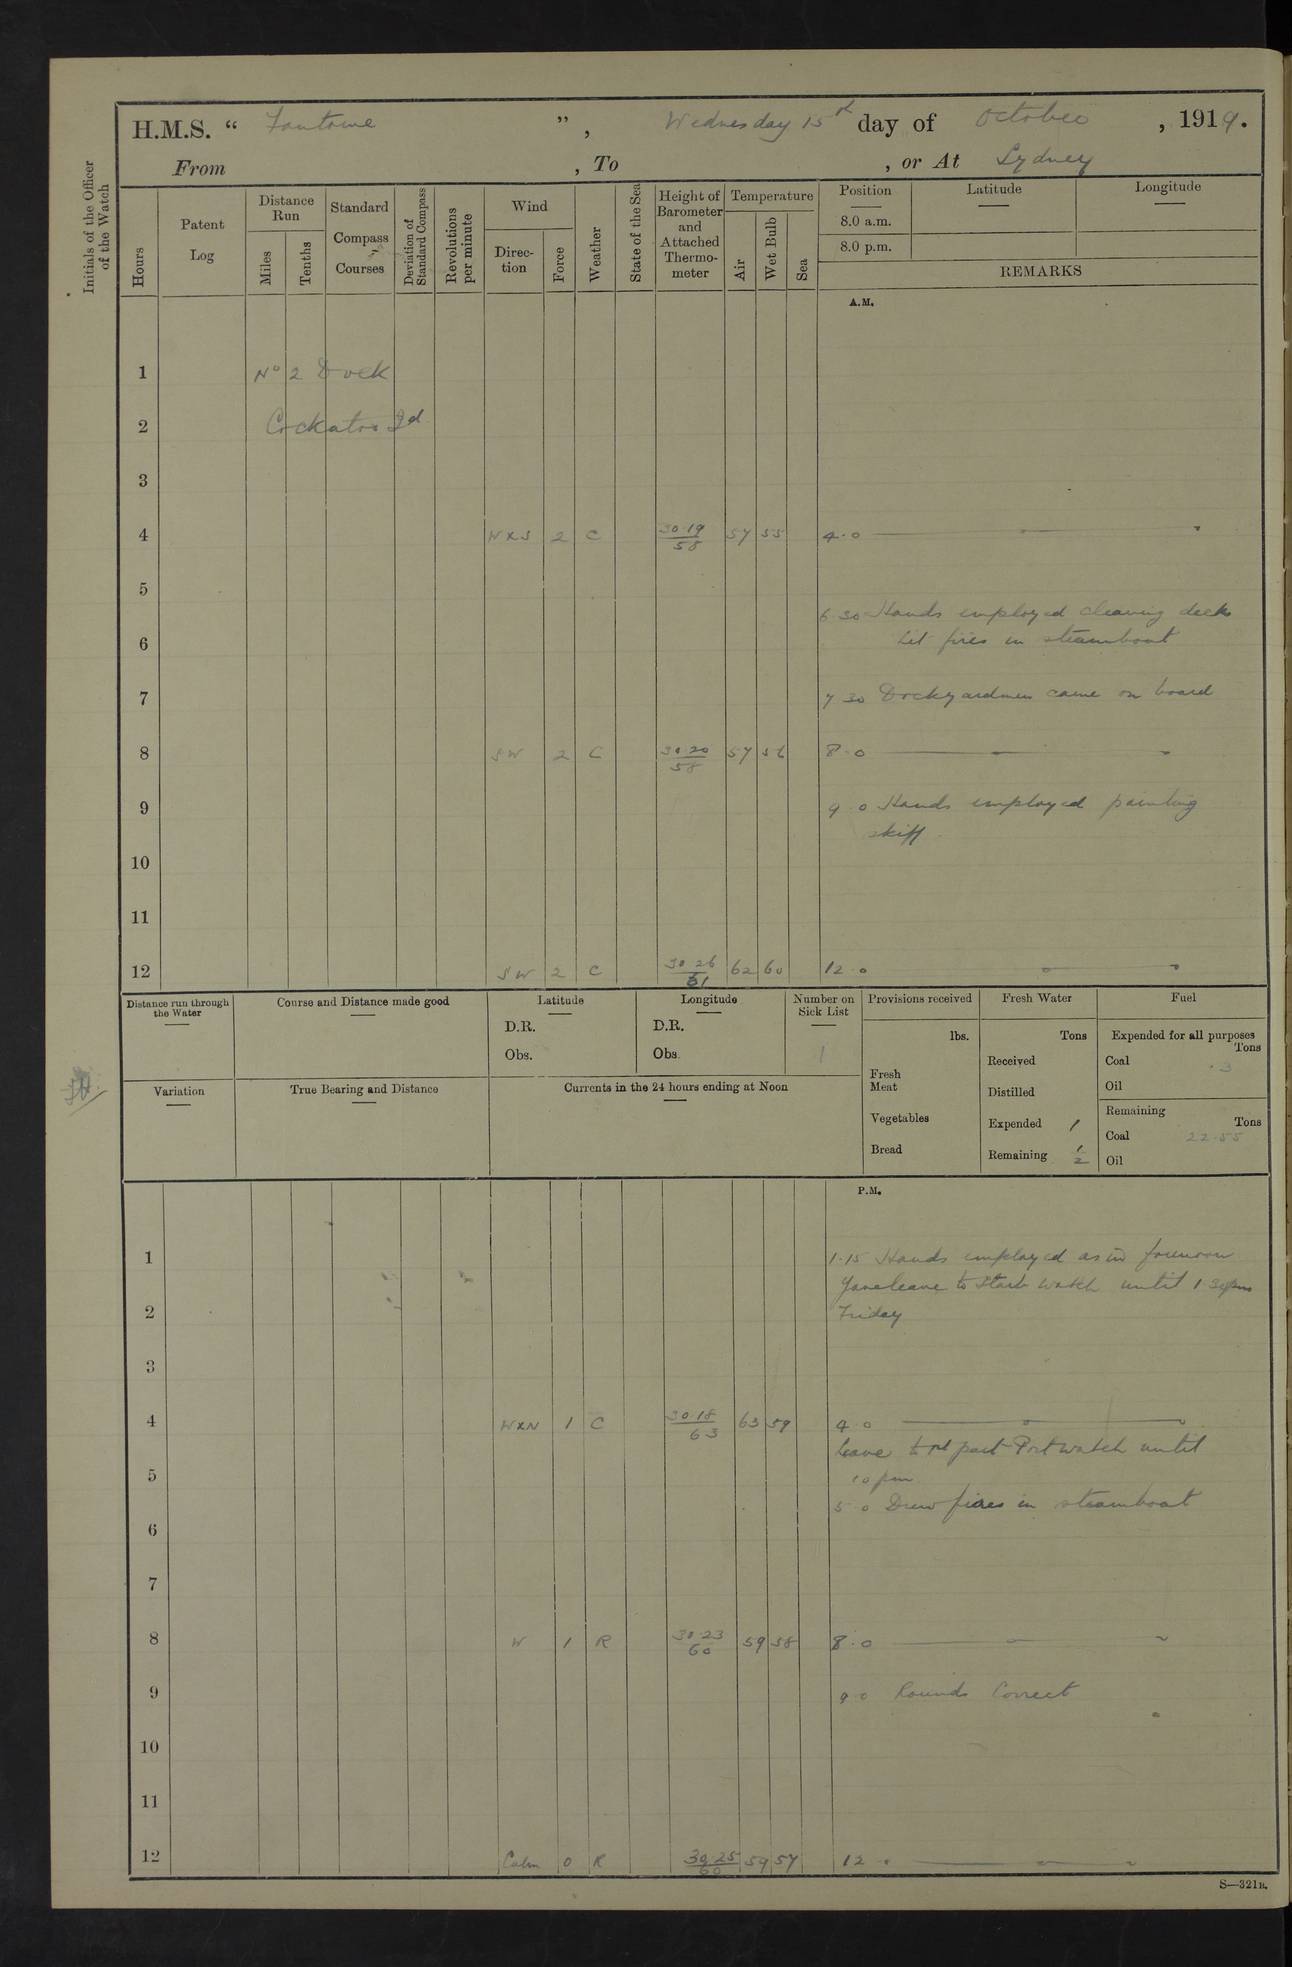 H.M.S. “ Fantome ”, Wednesday 15th day of October, 1919.
From , To , or At Sydney
Initials of the Officer of the Watch
Hours
Patent Log
Distance Run
Miles
Tenths
Standard Compass Courses
Deviation of Standard Compass
Revolutions per minute
Wind
Direc-tion
Force
Weather
State of the Sea
Height of Barometer and Attached Thermo-meter
Temperature
Air
Wet Bulb
Sea
Position
8.0 a.m.
8.0 p.m.
Latitude
Longitude
REMARKS
A.M.
1 No 2 Dock
2 Cockatoo Id
3
4 WxS 2 C 30.19 58 57 55 4.0
5
6.30 Hands employed cleaning decks
6 Lit fires in steamboat
7 7 30 Dockyardmen came on board
8 SW 2 C 30.20 58 57 56 8.0
9 9 0 Hands employed painting
skiff.
10
11
12 SW 2 C 30 26 61 62 60 12.0
Distance run through the Water
Course and Distance made good
Latitude
D.R.
Obs.
Longitude
D.R.
Obs.
Number on Sick List
1
Provisions received
lbs.
Fresh Meat
Vegetables
Bread
Fresh Water
Tons
Received
Distilled
Expended 1
Remaining 1/2
Fuel
Expended for all purposes
Tons
Coal .3
Oil
Remaining
Tons
Coal 22.55
Oil
Variation
True Bearing and Distance
Currents in the 24 hours ending at Noon
P.M.
1 1.15 Hands employed as in forenoon
Gave leave to Starb watch until 1.30pm
2 Friday
3
4 WxN 1 C 30.18 63 63 59 4 0
Leave to 1st part Port watch until
5 10 pm
5 0 Drew fires in steamboat
6
7
8 W 1 R 30.23 60 59 58 8.0
9 9 0 Rounds Correct
10
11
12 Calm 0 R 30.25 60 59 57 12
S—321B.